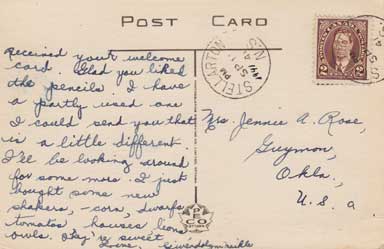 POST CARD
Received your welcome
card. Glad you liked
the pencils. I have
a partly used one
I could send you that
is a little different.
I'll be looking around
for some more. I just
bought some new
shakers, - corn, dwarfs
tomatoes, houses, lions
owls. They're sweet
Love. Gwendolyn
STELLARTON
PM
N.S.
2 2
Mrs. Jennie A. Rose,
Guymon,
Okla.,
U. S. a
P
CO